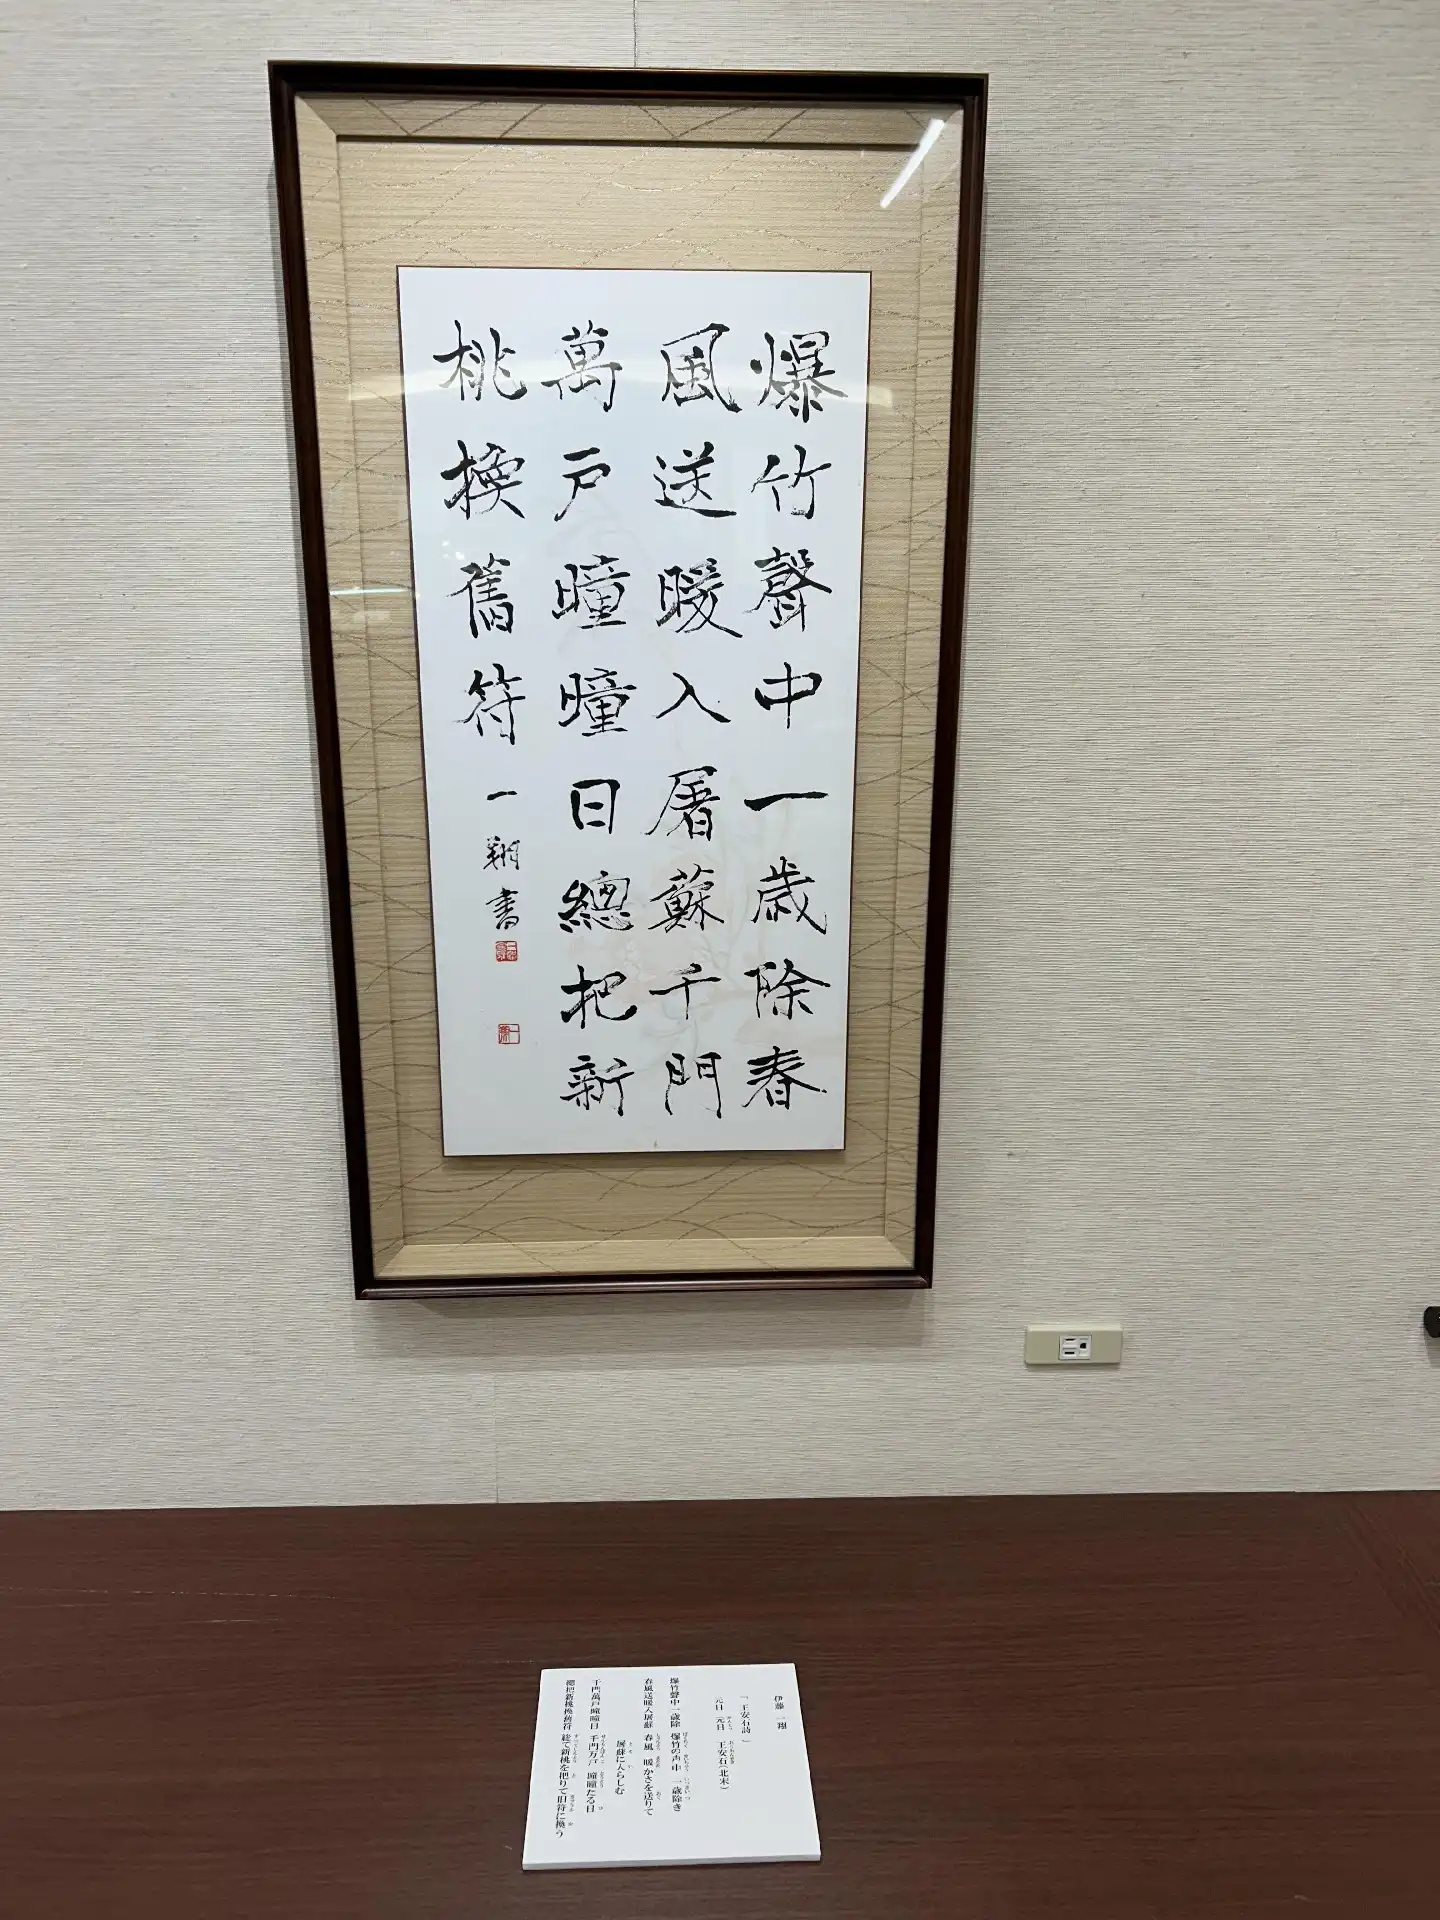 爆竹聲中一歲除春
風送暖入屠蘇千門
萬戸曈曈日總把新
桃換舊符
一翔書
伊藤 一翔
「王安石詩」
元日(元日 王安石(北宋)
爆竹聲中一歲除 爆竹の声中 一歳除き
春風送暖入屠蘇 春風 暖かさを送りて
屠蘇に入らしむ
千門萬戸曈曈日 千門万戸 曈曈たる日
總把新桃換舊符 総て新桃を把りて旧符に換う